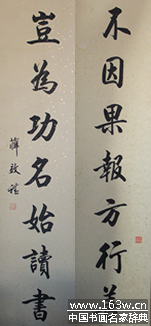 不因果報方行善
豈為功名始讀書
薛致禮
www.163w.cn
中国书画名家辞典